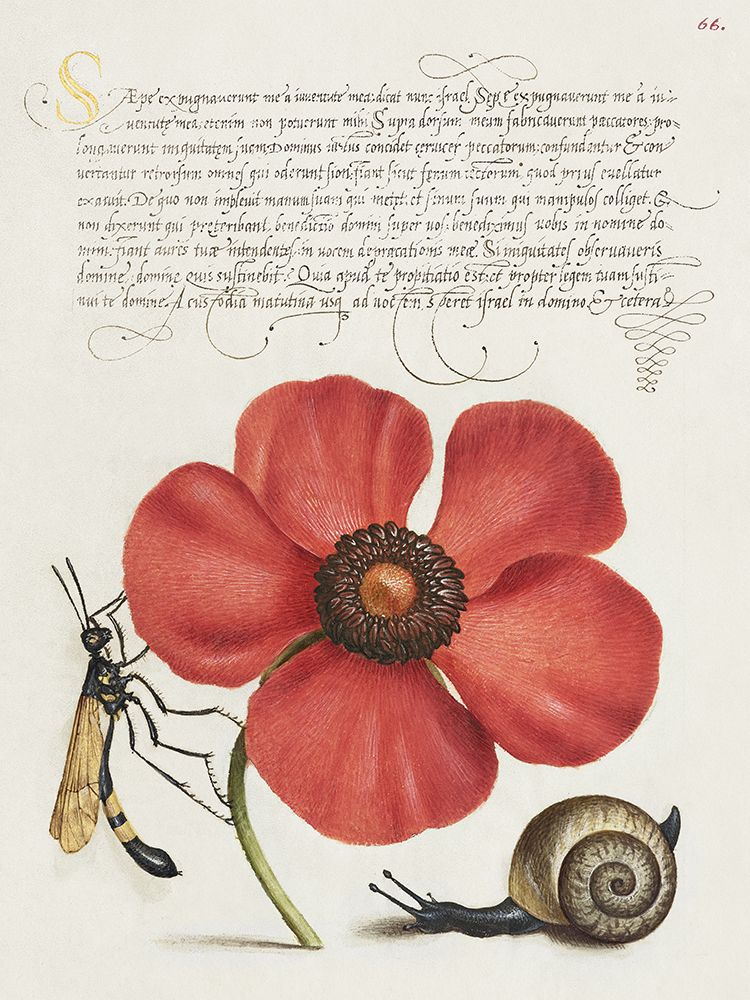 66.
SÆpe expugnaverunt me a iuventute mea: dicat nunc israel. Sepe expugnaverunt me a iu-
ventute mea, etenim non potuerunt mihi. Supra dorsum meum fabricaverunt peccatores: pro-
longaverunt iniquitatem suem. Dominus iustus concidet cervices peccatorum: confundantur & con
vertantur retrorsum omnes qui oderunt sion. fiant sicut fenum tectorum quod prius evellatur
exaruit. De quo non implevit manum suam qui metet, et sinum suum qui manipulos colliget. &
non dixerunt qui preteribant, benedictio domini super vos: benediximus vobis in nomine do-
mini. fiant aures tuæ intendentes, in vocem deprecationis meæ. Si iniquitates observaveris
domine: domine quis sustinebit. Quia apud te propitiatio est: et propter legem tuam susti-
nui te domine. A custodia matutina usq ad noctem, speret israel in domino. & cetera